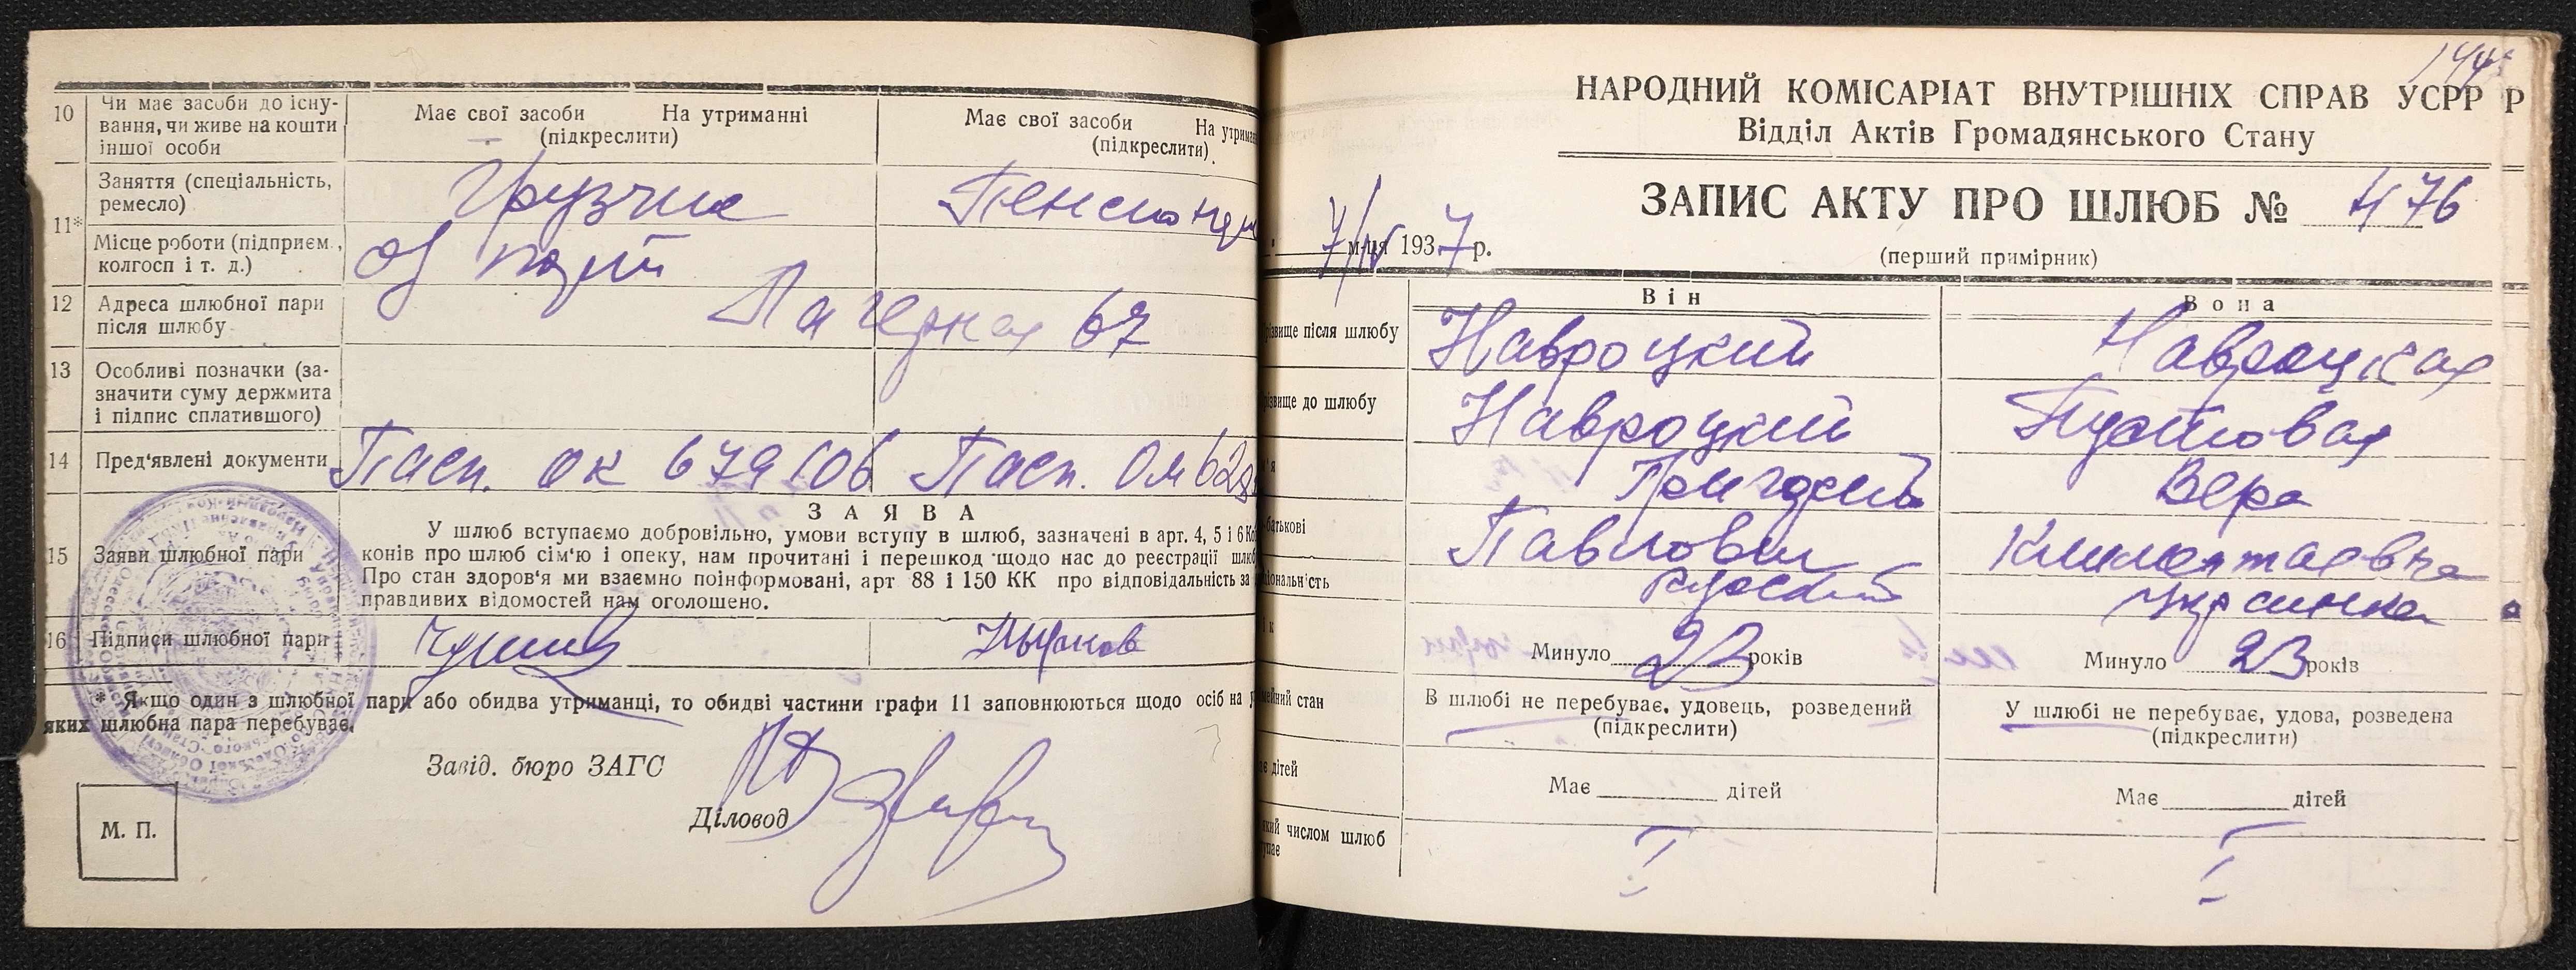 10 Чи має засоби до існу-
вання, чи живе на кошти
іншої особи
Має свої засоби На утриманні
(підкреслити)
Має свої засоби На утриман
(підкреслити)
11*
Заняття (спеціальність,
ремесло)
Грузчик
Місце роботи (підприєм.,
колгосп і т. д.)
Од порт
12 Адреса шлюбної пари
після шлюбу
Лагерная 67
13 Особливі позначки (за-
значити суму держмита
і підпис сплатившого)
14 Пред'явлені документи
Пасп. ОК 679106 Пасп. ОМ
ЗАЯВА
15 Заяви шлюбної пари
У шлюб вступаємо добровільно, умови вступу в шлюб, зазначені в арт. 4, 5 і 6 Ко
конів про шлюб сім'ю і опеку, нам прочитані і перешкод щодо нас до реєстрації шлю
Про стан здоров'я ми взаємно поінформовані, арт 88 і 150 КК про відповідальність за
правдивих відомостей нам оголошено.
16 Підписи шлюбної пари
* Якщо один з шлюбної пари або обидва утриманці, то обидві частини графи 11 заповнюються щодо осіб на у
яких шлюбна пара перебуває.
Завід. бюро ЗАГС
Діловод
М. П.
НАРОДНИЙ КОМІСАРІАТ ВНУТРІШНІХ СПРАВ УСРР Р
Відділ Актів Громадянського Стану
ЗАПИС АКТУ ПРО ШЛЮБ № 476
7/IV м-ця 1937 р.
(перший примірник)
Він Вона
різвище після шлюбу Навроцкий Навроцкая
різвище до шлюбу Навроцкий Пустовая
м'я Григорий Вера
батькові Павлович
ціональність Украинка
ік Минуло 23 років Минуло 23 років
мейний стан
В шлюбі не перебуває, удовець, розведений
(підкреслити)
У шлюбі не перебуває, удова, розведена
(підкреслити)
ає дітей Має дітей Має дітей
який числом шлюб
тупає
I I